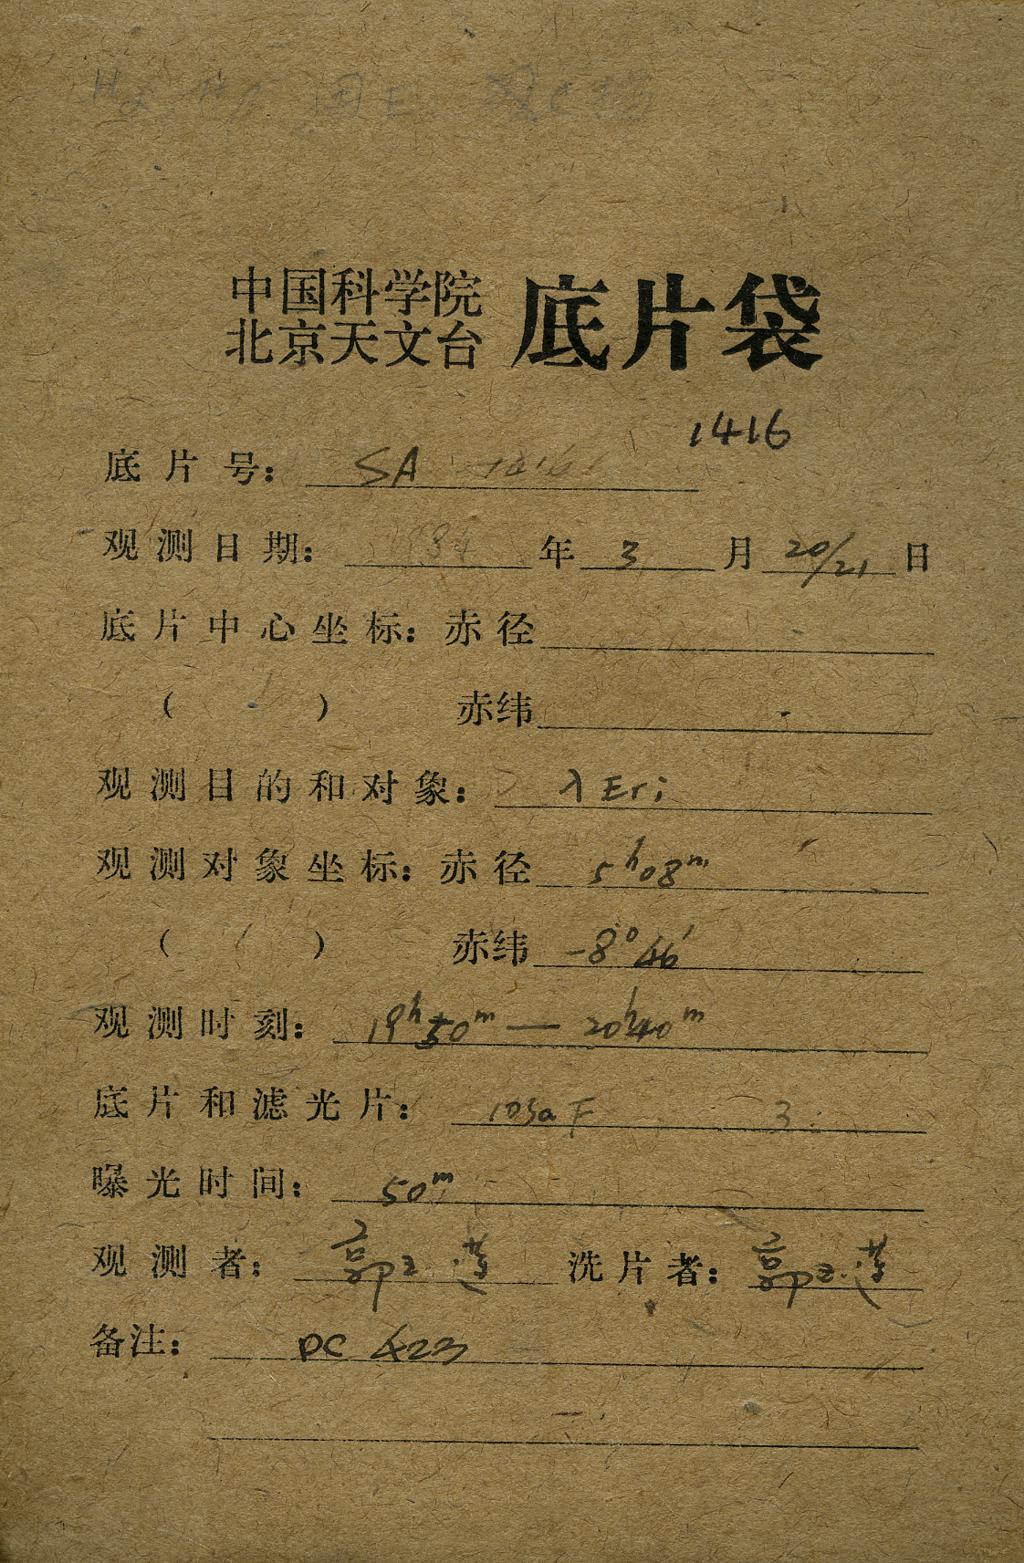 中国科学院
北京天文台 底片袋
1416
底片号： SA 1416
观测日期： 1984 年 3 月 20/21 日
底片中心坐标：赤径
（ ） 赤纬
观测目的和对象： λ Eri
观测对象坐标：赤径 5h08m
（ ） 赤纬 -8°46′
观测时刻： 19h50m — 20h40m
底片和滤光片： 103aF 3
曝光时间： 50m
观测者： 郭玉莲 洗片者： 郭玉莲
备注： DC 423